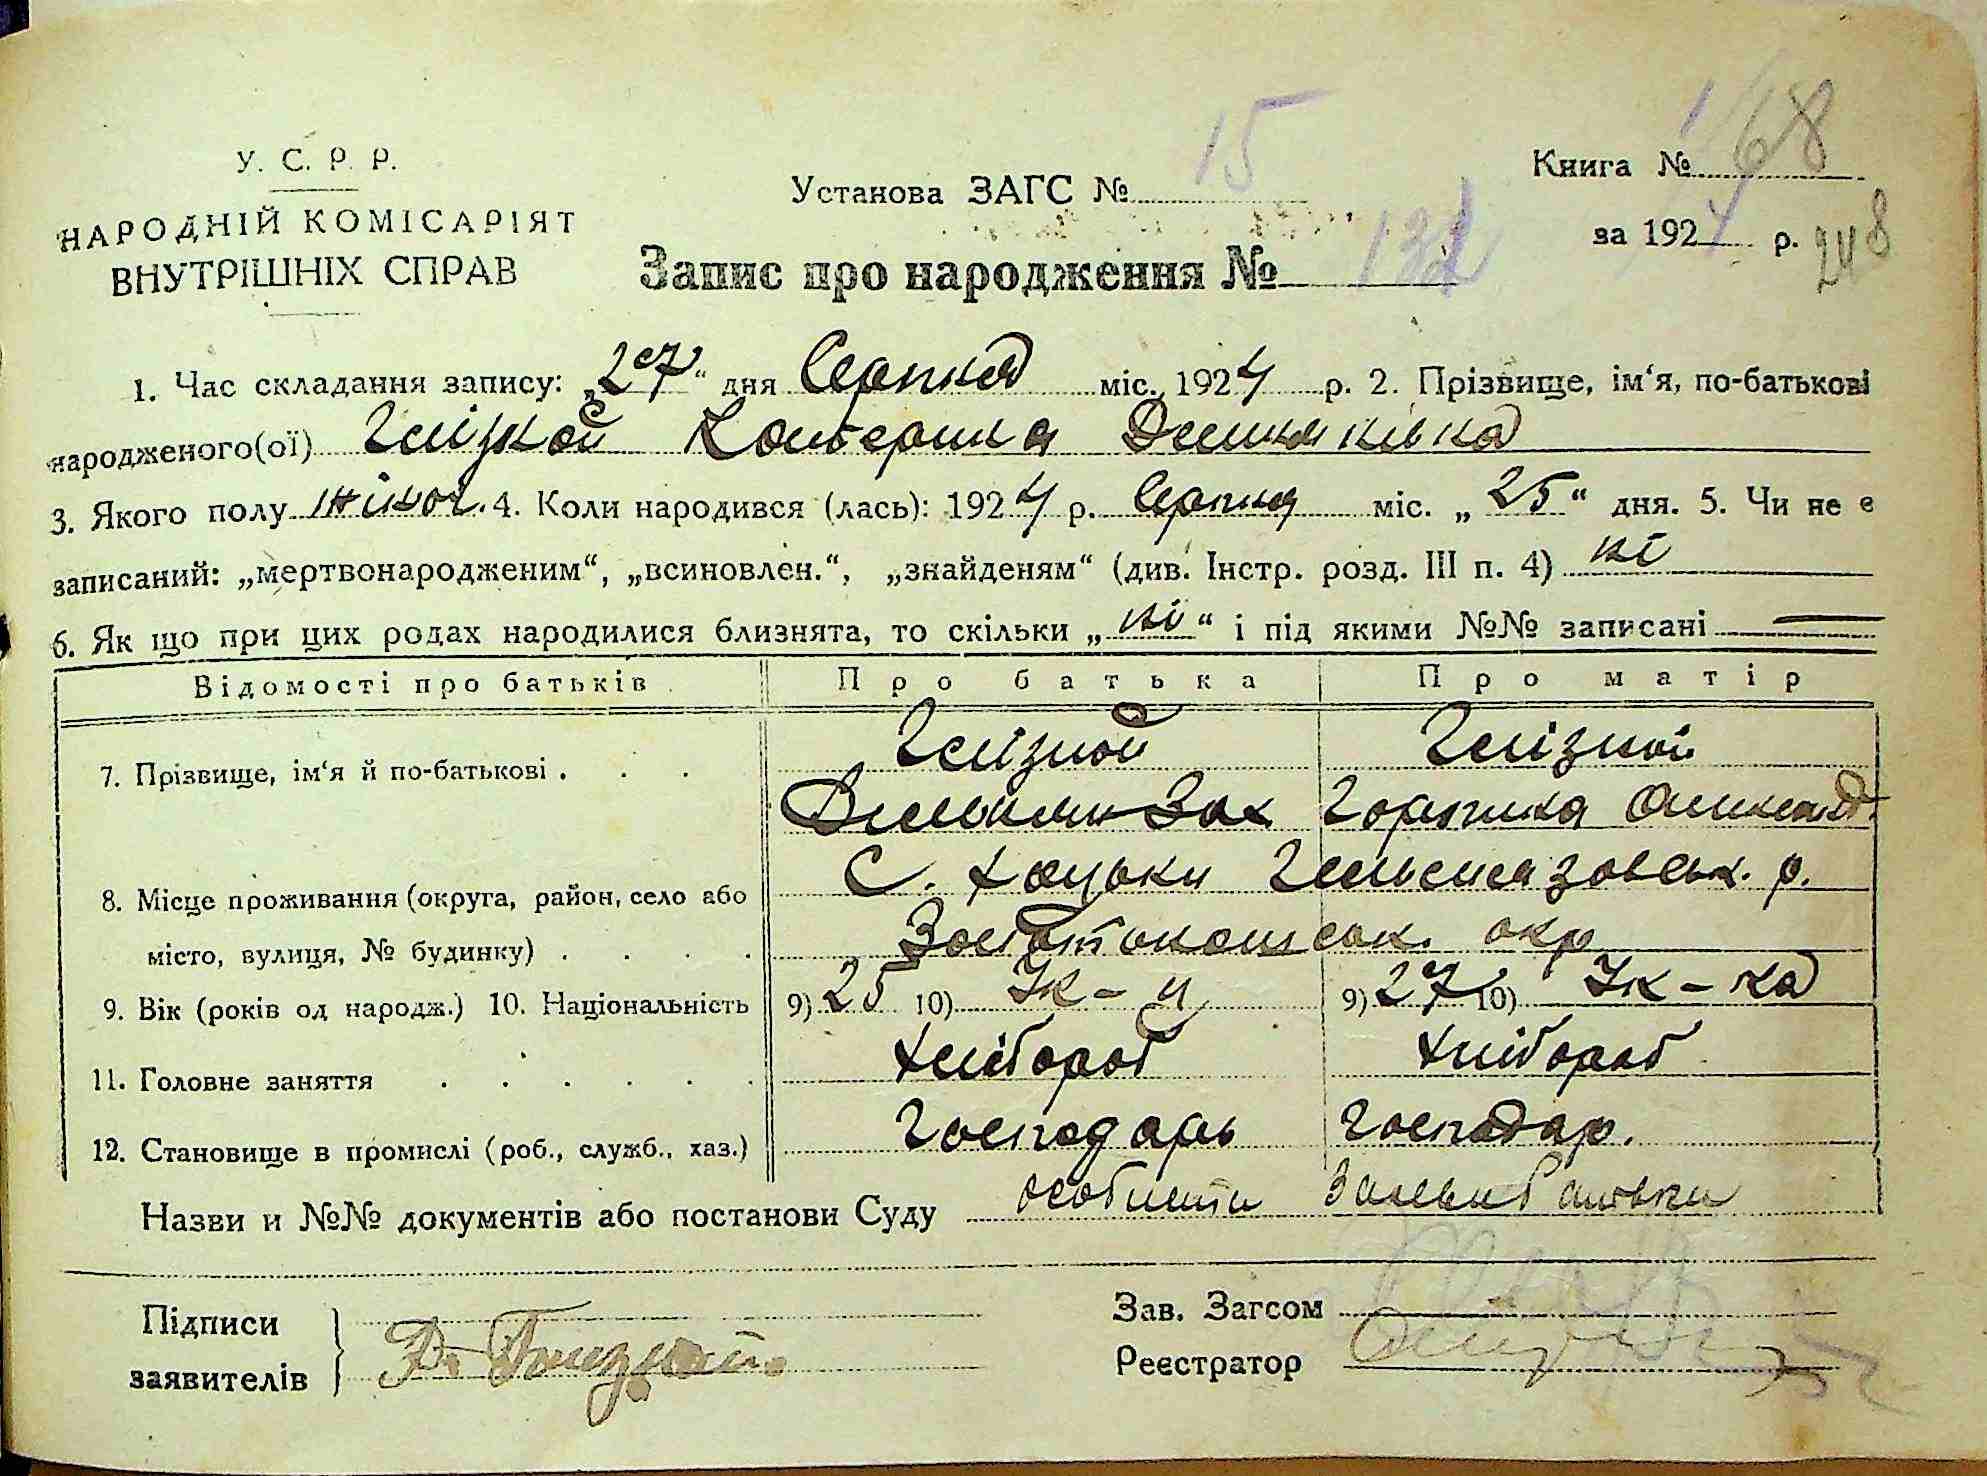 У. С. Р. Р.
НАРОДНІЙ КОМІСАРІЯТ
ВНУТРІШНІХ СПРАВ
Установа ЗАГС № 15
Книга № 68
за 1924 р. 248
Запис про народження № 132
1. Час складання запису: „27“ дня Серпня міс. 1924 р. 2. Прізвище, ім‘я, по-батькові
народженого(ої) Гмізной Катерина
3. Якого полу жіноч. 4. Коли народився (лась): 1924 р. Серпня міс. „25“ дня. 5. Чи не є
записаний: „мертвонародженим“, „всиновлен.“, „знайденям“ (див. Інстр. розд. III п. 4) ні
6. Як що при цих родах народилися близнята, то скільки „ні“ і під якими №№ записані —
Відомості про батьків Про батька Про матір
7. Прізвище, ім‘я й по-батькові . . . Гмізной Гмізной
Зах Горпина Олександ.
8. Місце проживання (округа, район, село або С. Хоцьки Гельмязовськ. р.
місто, вулиця, № будинку) . . . . Золотоношськ. окр
9. Вік (років од народж.) 10. Національність 9) 25 10) Ук-ц 9) 27 10) Ук-ка
11. Головне заняття . . . . . . Хлібороб Хлібороб
12. Становище в промислі (роб., служб., хаз.) Господарь Господар.
Назви и №№ документів або постанови Суду особисти Заяви батьки
Підписи
заявителів
Зав. Загсом
Реєстратор